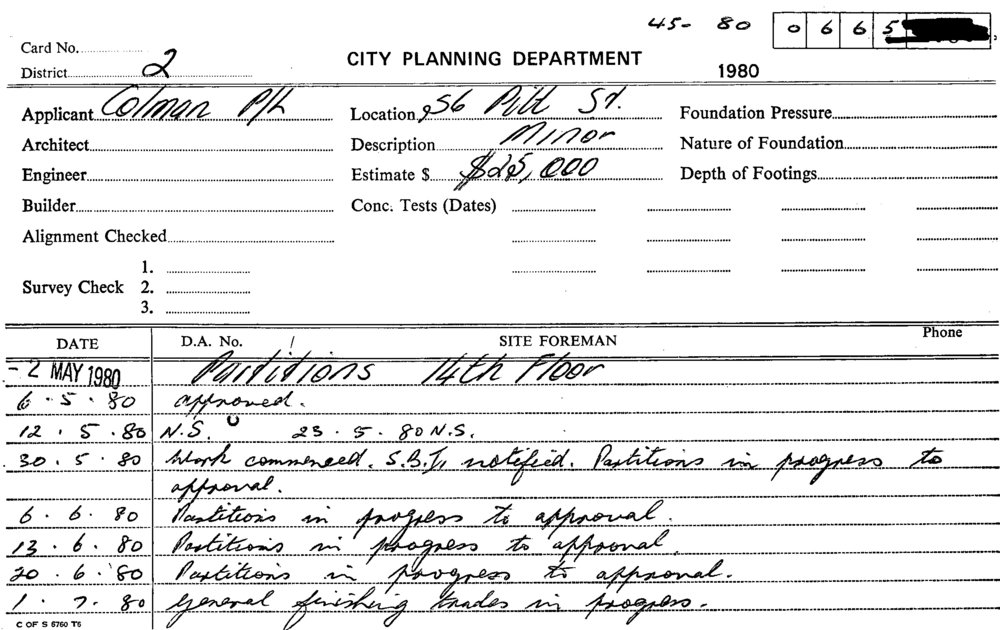 45- 80 0665
Card No.
District 2
CITY PLANNING DEPARTMENT
1980
Applicant Colman P/L
Location 256 Pitt St.
Foundation Pressure
Architect
Description Minor
Nature of Foundation
Engineer
Estimate $ $25,000
Depth of Footings
Builder
Conc. Tests (Dates)
Alignment Checked
1.
Survey Check 2.
3.
DATE D.A. No. / SITE FOREMAN Phone
- 2 MAY 1980 Partitions 14th Floor
6 . 5 . 80 approved.
12 . 5 . 80 N.S. 23 . 5 . 80 N.S.
30 . 5 . 80 Work commenced. S.B.I. notified. Partitions in progress to
approval.
6 . 6 . 80 Partitions in progress to approval.
13 . 6 . 80 Partitions in progress to approval.
20 . 6 . 80 Partitions in progress to approval.
1 . 7 . 80 General finishing trades in progress.
C OF S 6760 T6